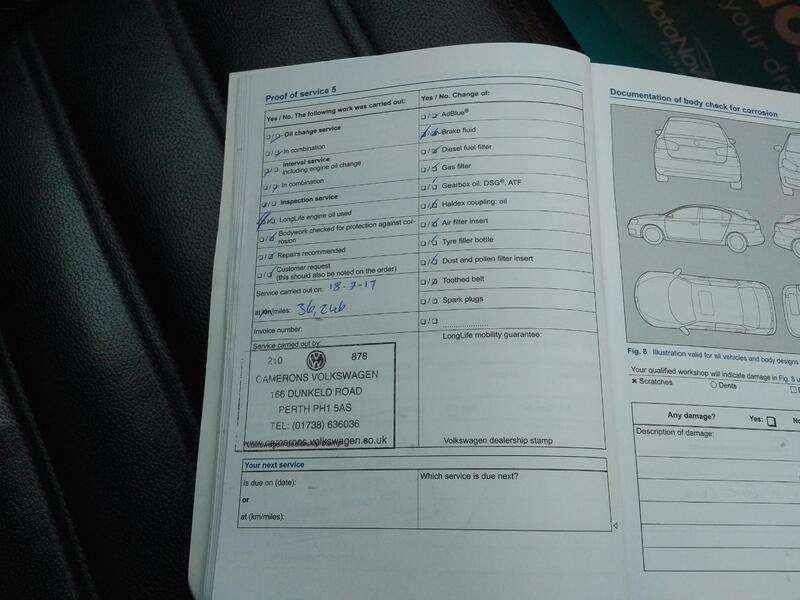 Proof of service 5
Yes / No. The following work was carried out:
Oil change service
In combination
Interval service
including engine oil change
In combination
Inspection service
LongLife engine oil used
Bodywork checked for protection against cor-
rosion
Repairs recommended
Customer request
(this should also be noted on the order)
Service carried out on: 18-7-17
at km/miles: 36,246
Invoice number:
Service carried out by:
210 878
CAMERONS VOLKSWAGEN
166 DUNKELD ROAD
PERTH PH1 5AS
TEL: (01738) 636036
www.camerons.volkswagen.co.uk
Volkswagen dealership stamp
Yes / No. Change of:
AdBlue®
Brake fluid
Diesel fuel filter
Gas filter
Gearbox oil: DSG®, ATF
Haldex coupling: oil
Air filter insert
Tyre filler bottle
Dust and pollen filter insert
Toothed belt
Spark plugs
....................
LongLife mobility guarantee:
Volkswagen dealership stamp
Your next service
Is due on (date):
or
at (km/miles):
Which service is due next?
Documentation of body check for corrosion
Fig. 8 Illustration valid for all vehicles and body designs
Your qualified workshop will indicate damage in Fig. 8
Scratches
Dents
Any damage?
Yes:
Description of damage:
MotoNov
your